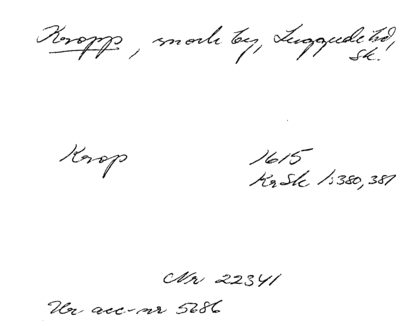 Kropp, snork by, Luggude hd,
Sk.
Krop 1615
KrSk 1:380, 387
Nr 22341
Ur acc-nr 5686